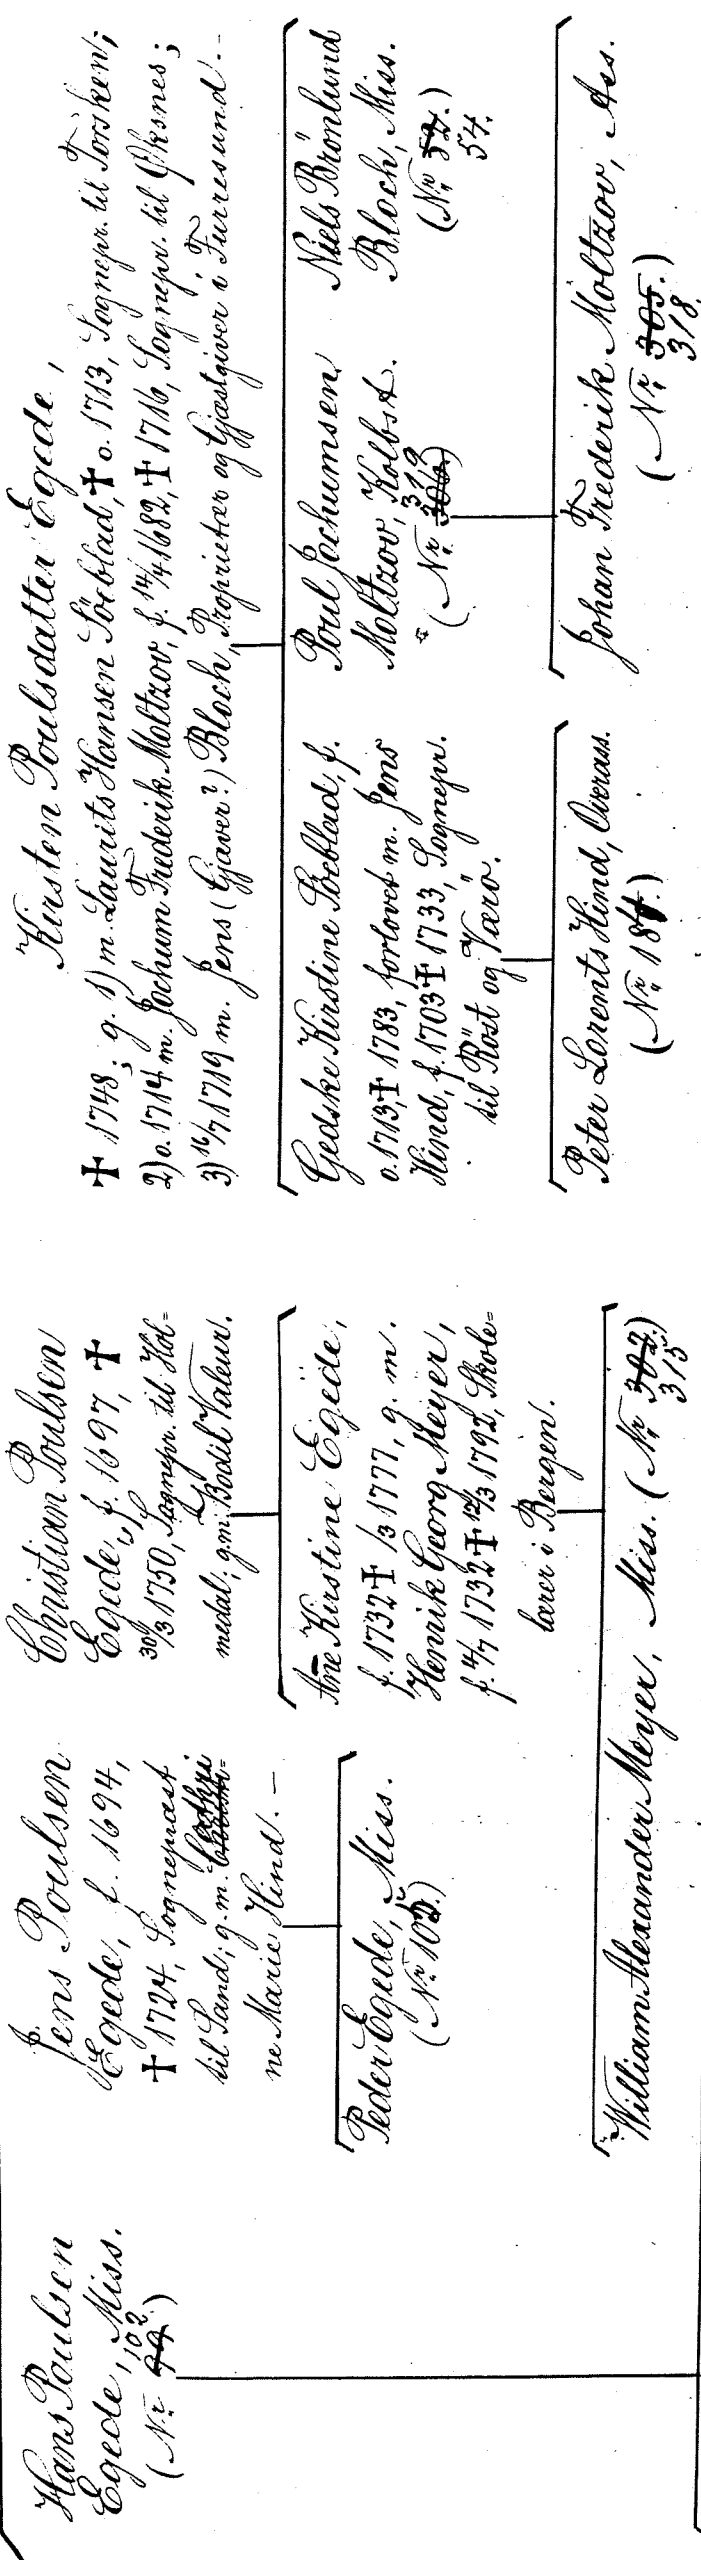 Hans Poulsen
Egede, Miss.
102
(Nr. 99.)
Jens Poulsen
Egede, f. 1694,
† 1724, Sognepræst
til Sand; g. m. Cathri
ne Marie Hind. —
Peder Egede, Miss.
Christian Poulsen
Egede, f. 1697, †
30/3 1750, Sognepr. til Hol=
medal; g. m. Bodil Valeur.
Ane Kirstine Egede,
f. 1732 † /3 1777, g. m.
Henrik Georg Meyer,
f. 4/7 1732 † 12/3 1792, Skole=
lærer i Bergen.
William Alexander Meyer, Miss. (Nr. 302.)
315
Kirsten Poulsdatter Egede,
† 1748; g. 1) m. Laurits Hansen Söeblad, † o. 1713, Sognepr. til Torsken;
2) o. 1714 m. Jochum Frederik Moltzov, f. 14/4 1682, † 1716, Sognepr. til Øksnes;
3) 16/7 1719 m. Jens (Gjaver?) Bloch, Proprietær og Gjæstgiver i Furresund. —
Gedske Kirstine Söeblad, f.
o. 1713, † 1783, forlovet m. Jens
Hind, f. 1703 † 1733, Sognepr.
til Röst og Værö.
Peter Lorents Hind, Overass.
Poul Jochumsen
Moltzov, Kolbst.
319
(Nr. 306.)
Niels Brönlund
Bloch, Miss.
(Nr. 52.)
54.
Johan Frederik Moltzov, Ass.
(Nr. 305.)
318.